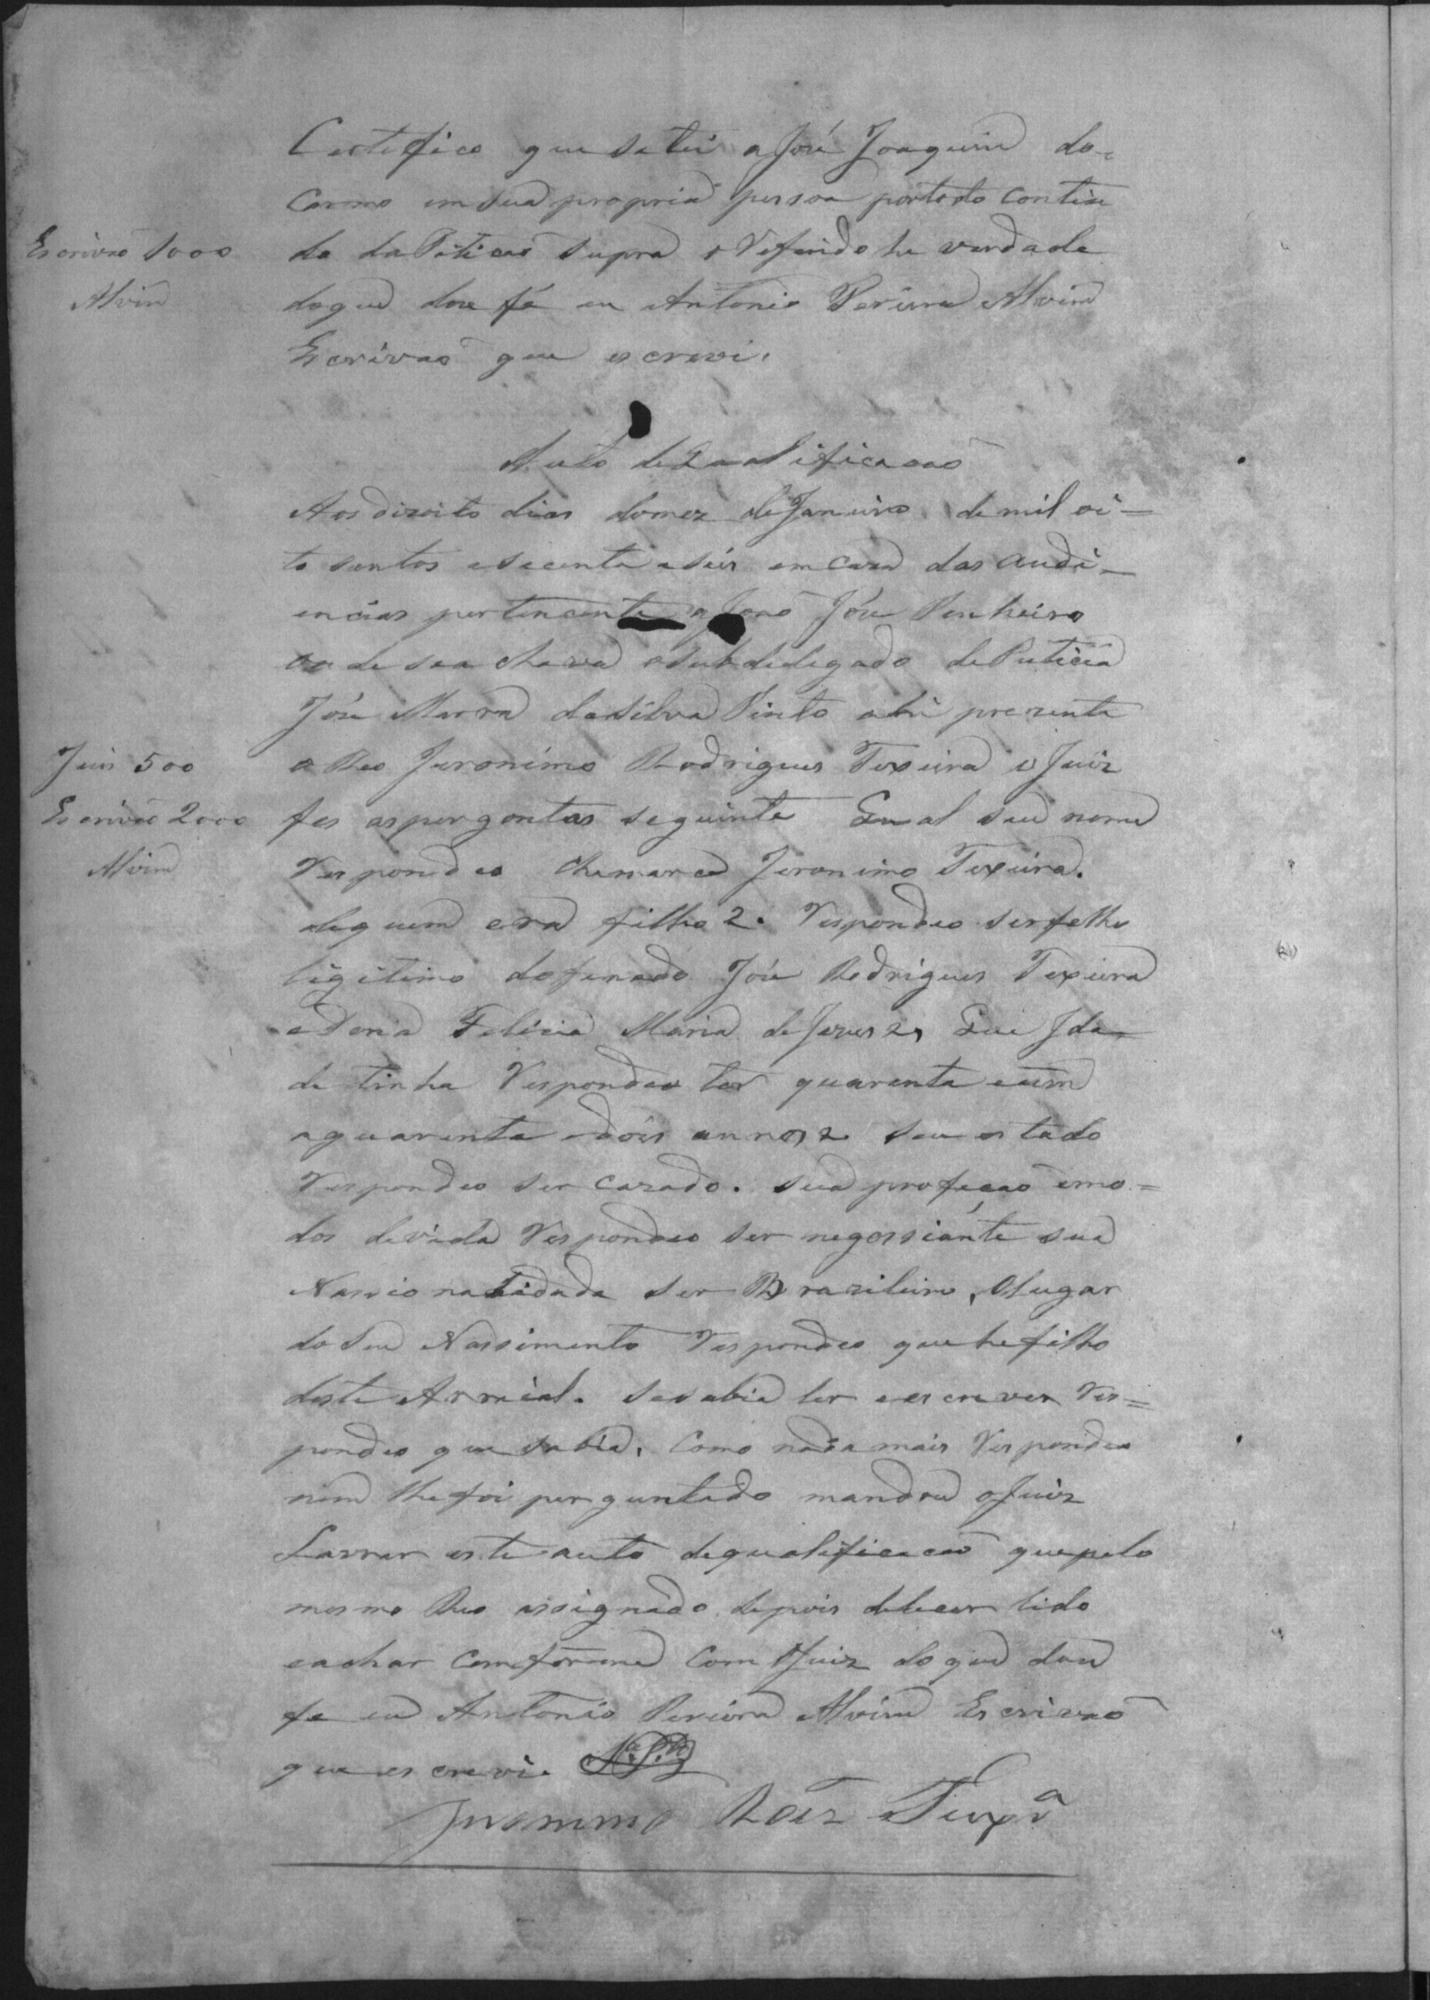 Certefico que setei a José Joaquim do=
Carmo em sua propria pessoa portodo contiu
do da Peticaõ supra e Referido he verdade
Escrivaõ 1000
Alvim
doque dou fé eu Antonio Pereira Alvim
Escrivaõ que escrevi.
Auto de Qualificacaõ
Aos dizoito dias domez de Janeiro de mil oi=
to sentos e secenta e seis em caza das Audi=
encias pertencente a Joaõ José Penheiro
onde se achava o Subdelegado de Pulicia
José Marra da Silva Pinto ahi prezente
o Reo Jeronimo Rodrigues Texeira o Juiz
Juis 500
fes as pergontas seguinte Qual seu nome
Escrivaõ 2000
Alvim
Respondeo chamarce Jeronimo Texeira.
dequem era filho 2. Respondeo ser felho
ligitimo do finado José Rodrigues Texeira
e Dona Felicia Maria de Jezus 2, Que Ida=
de tinha Respondeo ter quarenta e um
a quarenta e dois annos 2 seu estado
Respondeo ser cazado. sua profeçaõ e mo=
dos de vida Respondeo ser negossiante sua
Nassionalidada ser Brazileiro, O lugar
do seu Nassimento Respondeo que he filho
deste Arraial. se sabia ler e escrever Res=
pondeo que sabia, Como nada mais Respondeo
nem lhe foi perguntado mandou o Juiz
Lavrar este auto de qualificacaõ que pelo
mesmo Reo assignado depois de lhe ser lido
e achar comforme com o Juiz do que dou
fe eu Antonio Pereira Alvim Escrivaõ
que escrevi.
Jeronimo Roiz Teixrª